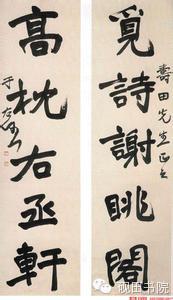 覓詩謝眺閣
壽田先生正之
高枕右丞軒
于右任
砚田书院